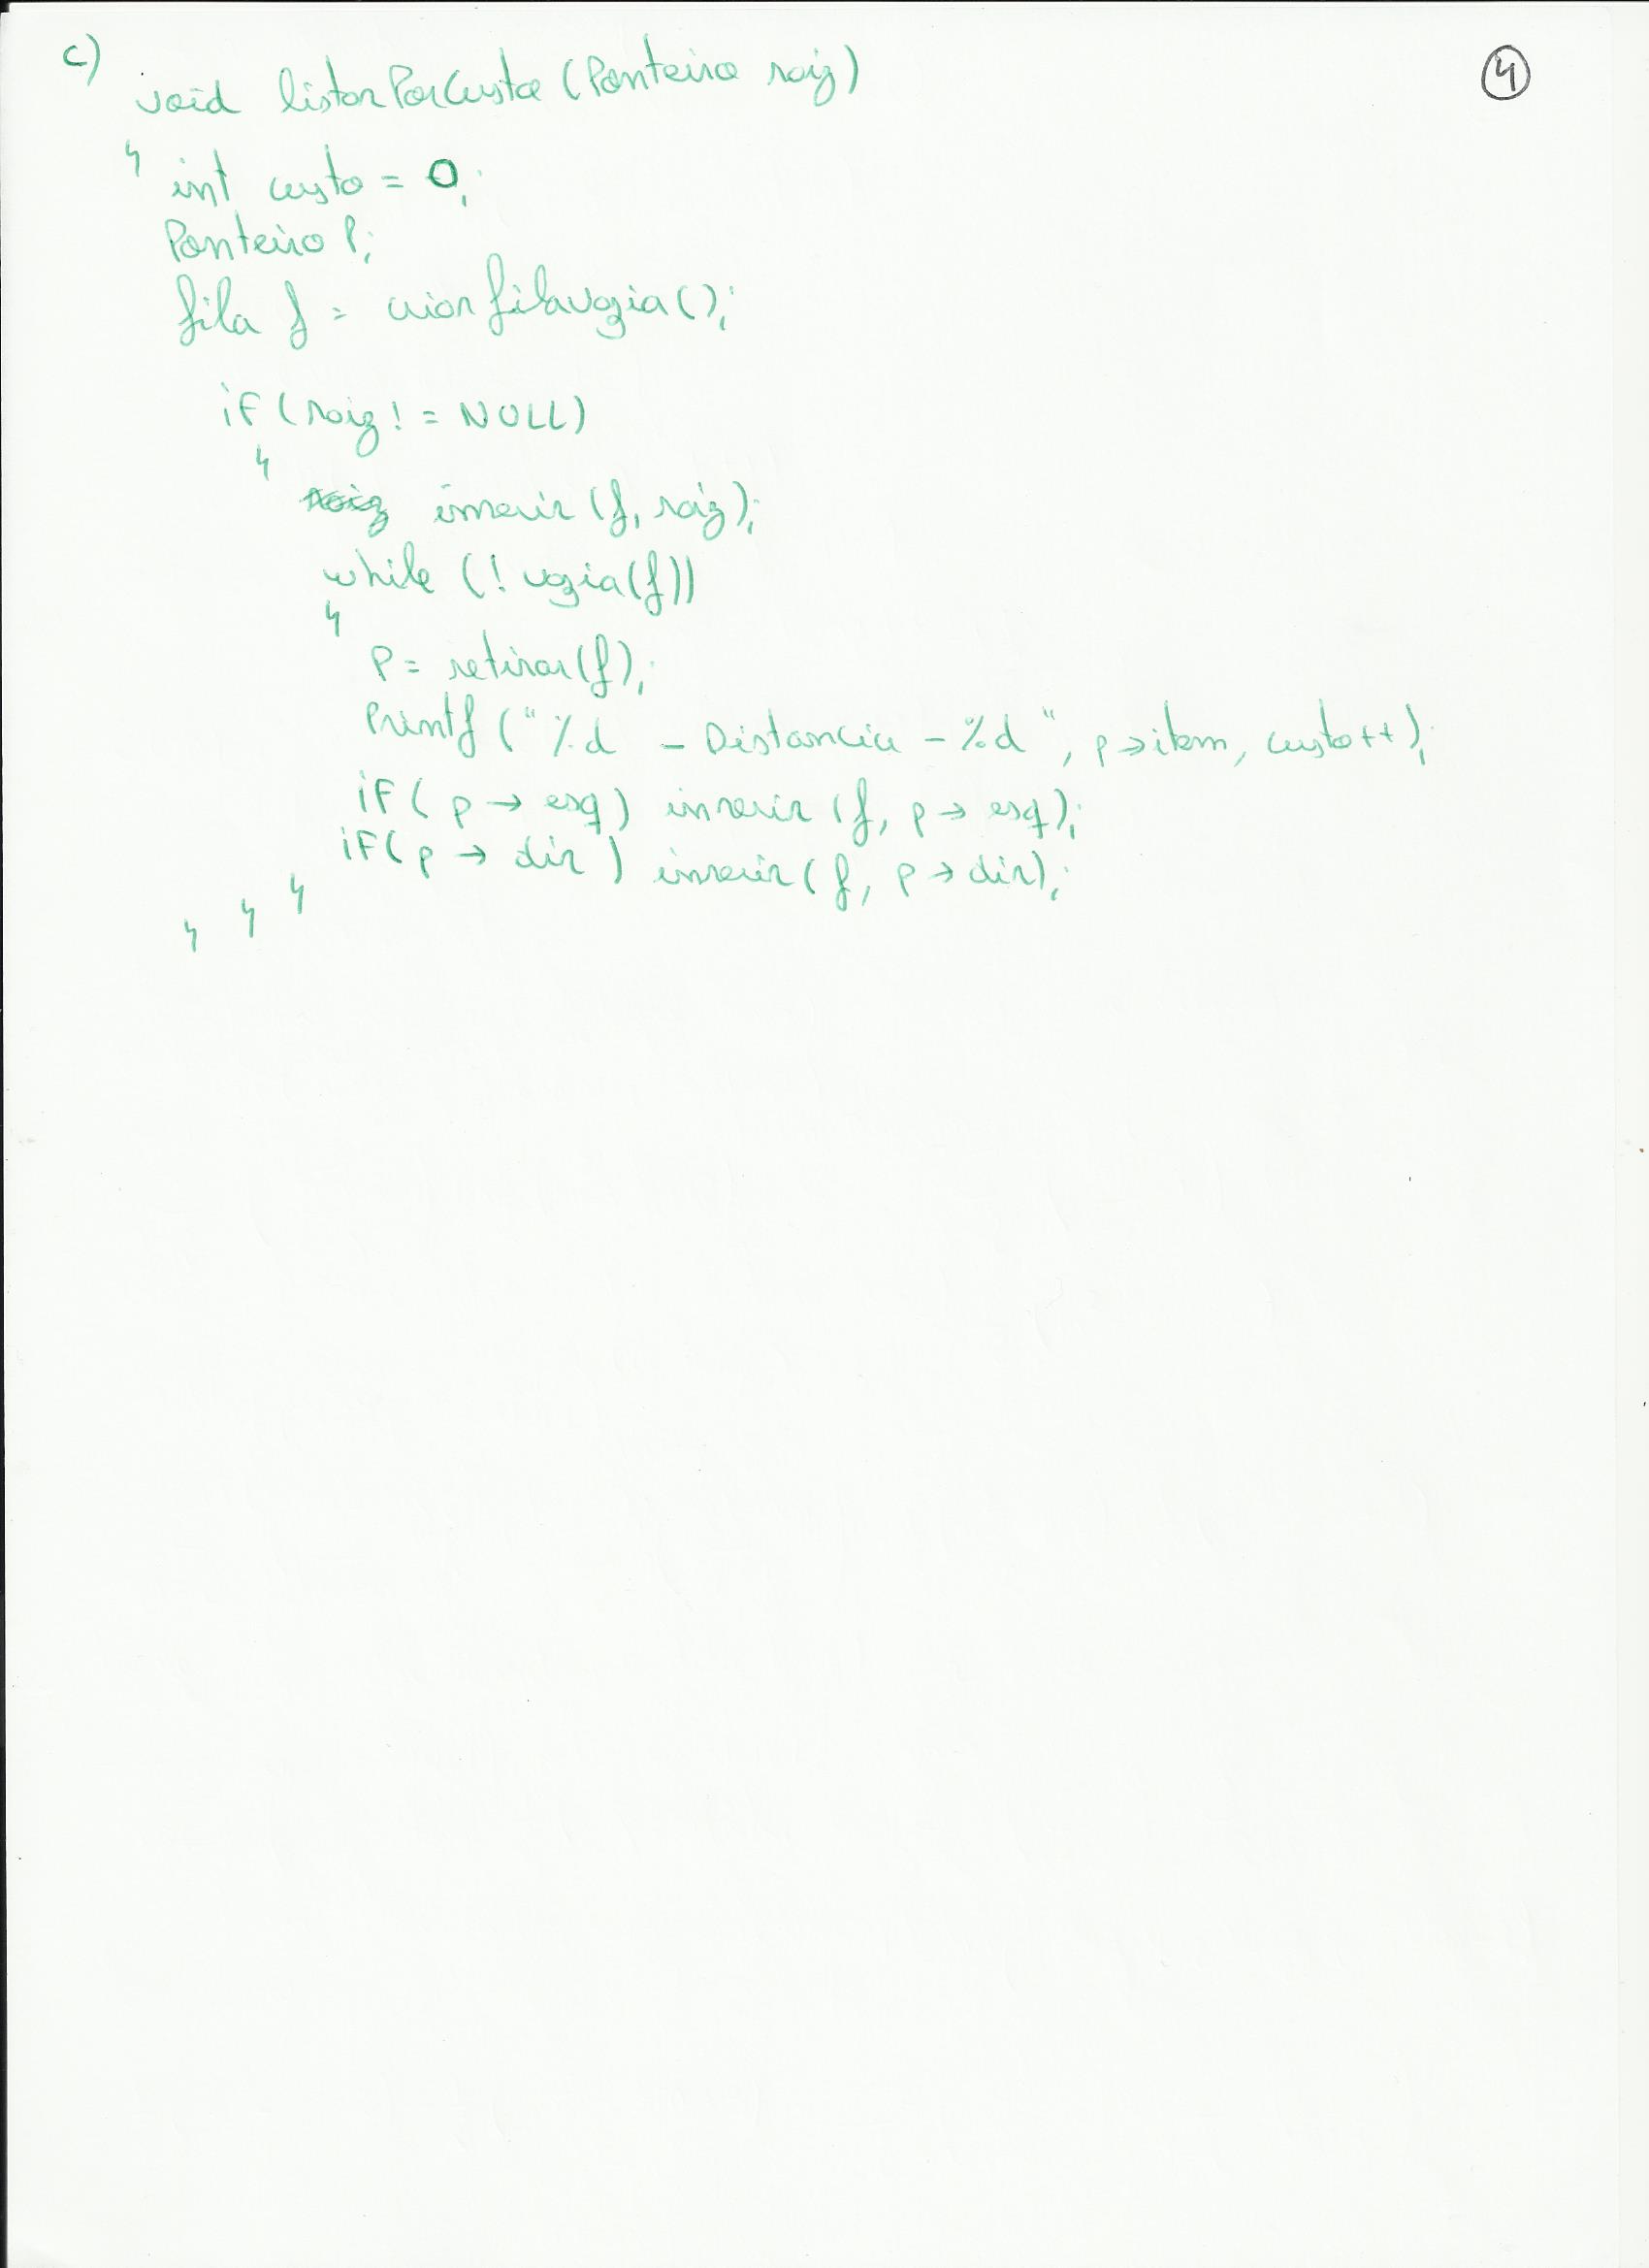 c)
4
void listarPorCusto (Ponteiro raiz)
{ int custo = 0;
Ponteiro P;
fila f = criarfilavazia();
if (raiz != NULL)
{
inserir (f, raiz);
while (! vazia(f))
{
P = retirar(f);
Printf ("%d - Distancia - %d", p->item, custo++);
if (p -> esq) inserir (f, p -> esq);
if (p -> dir) inserir (f, p -> dir);
} } }